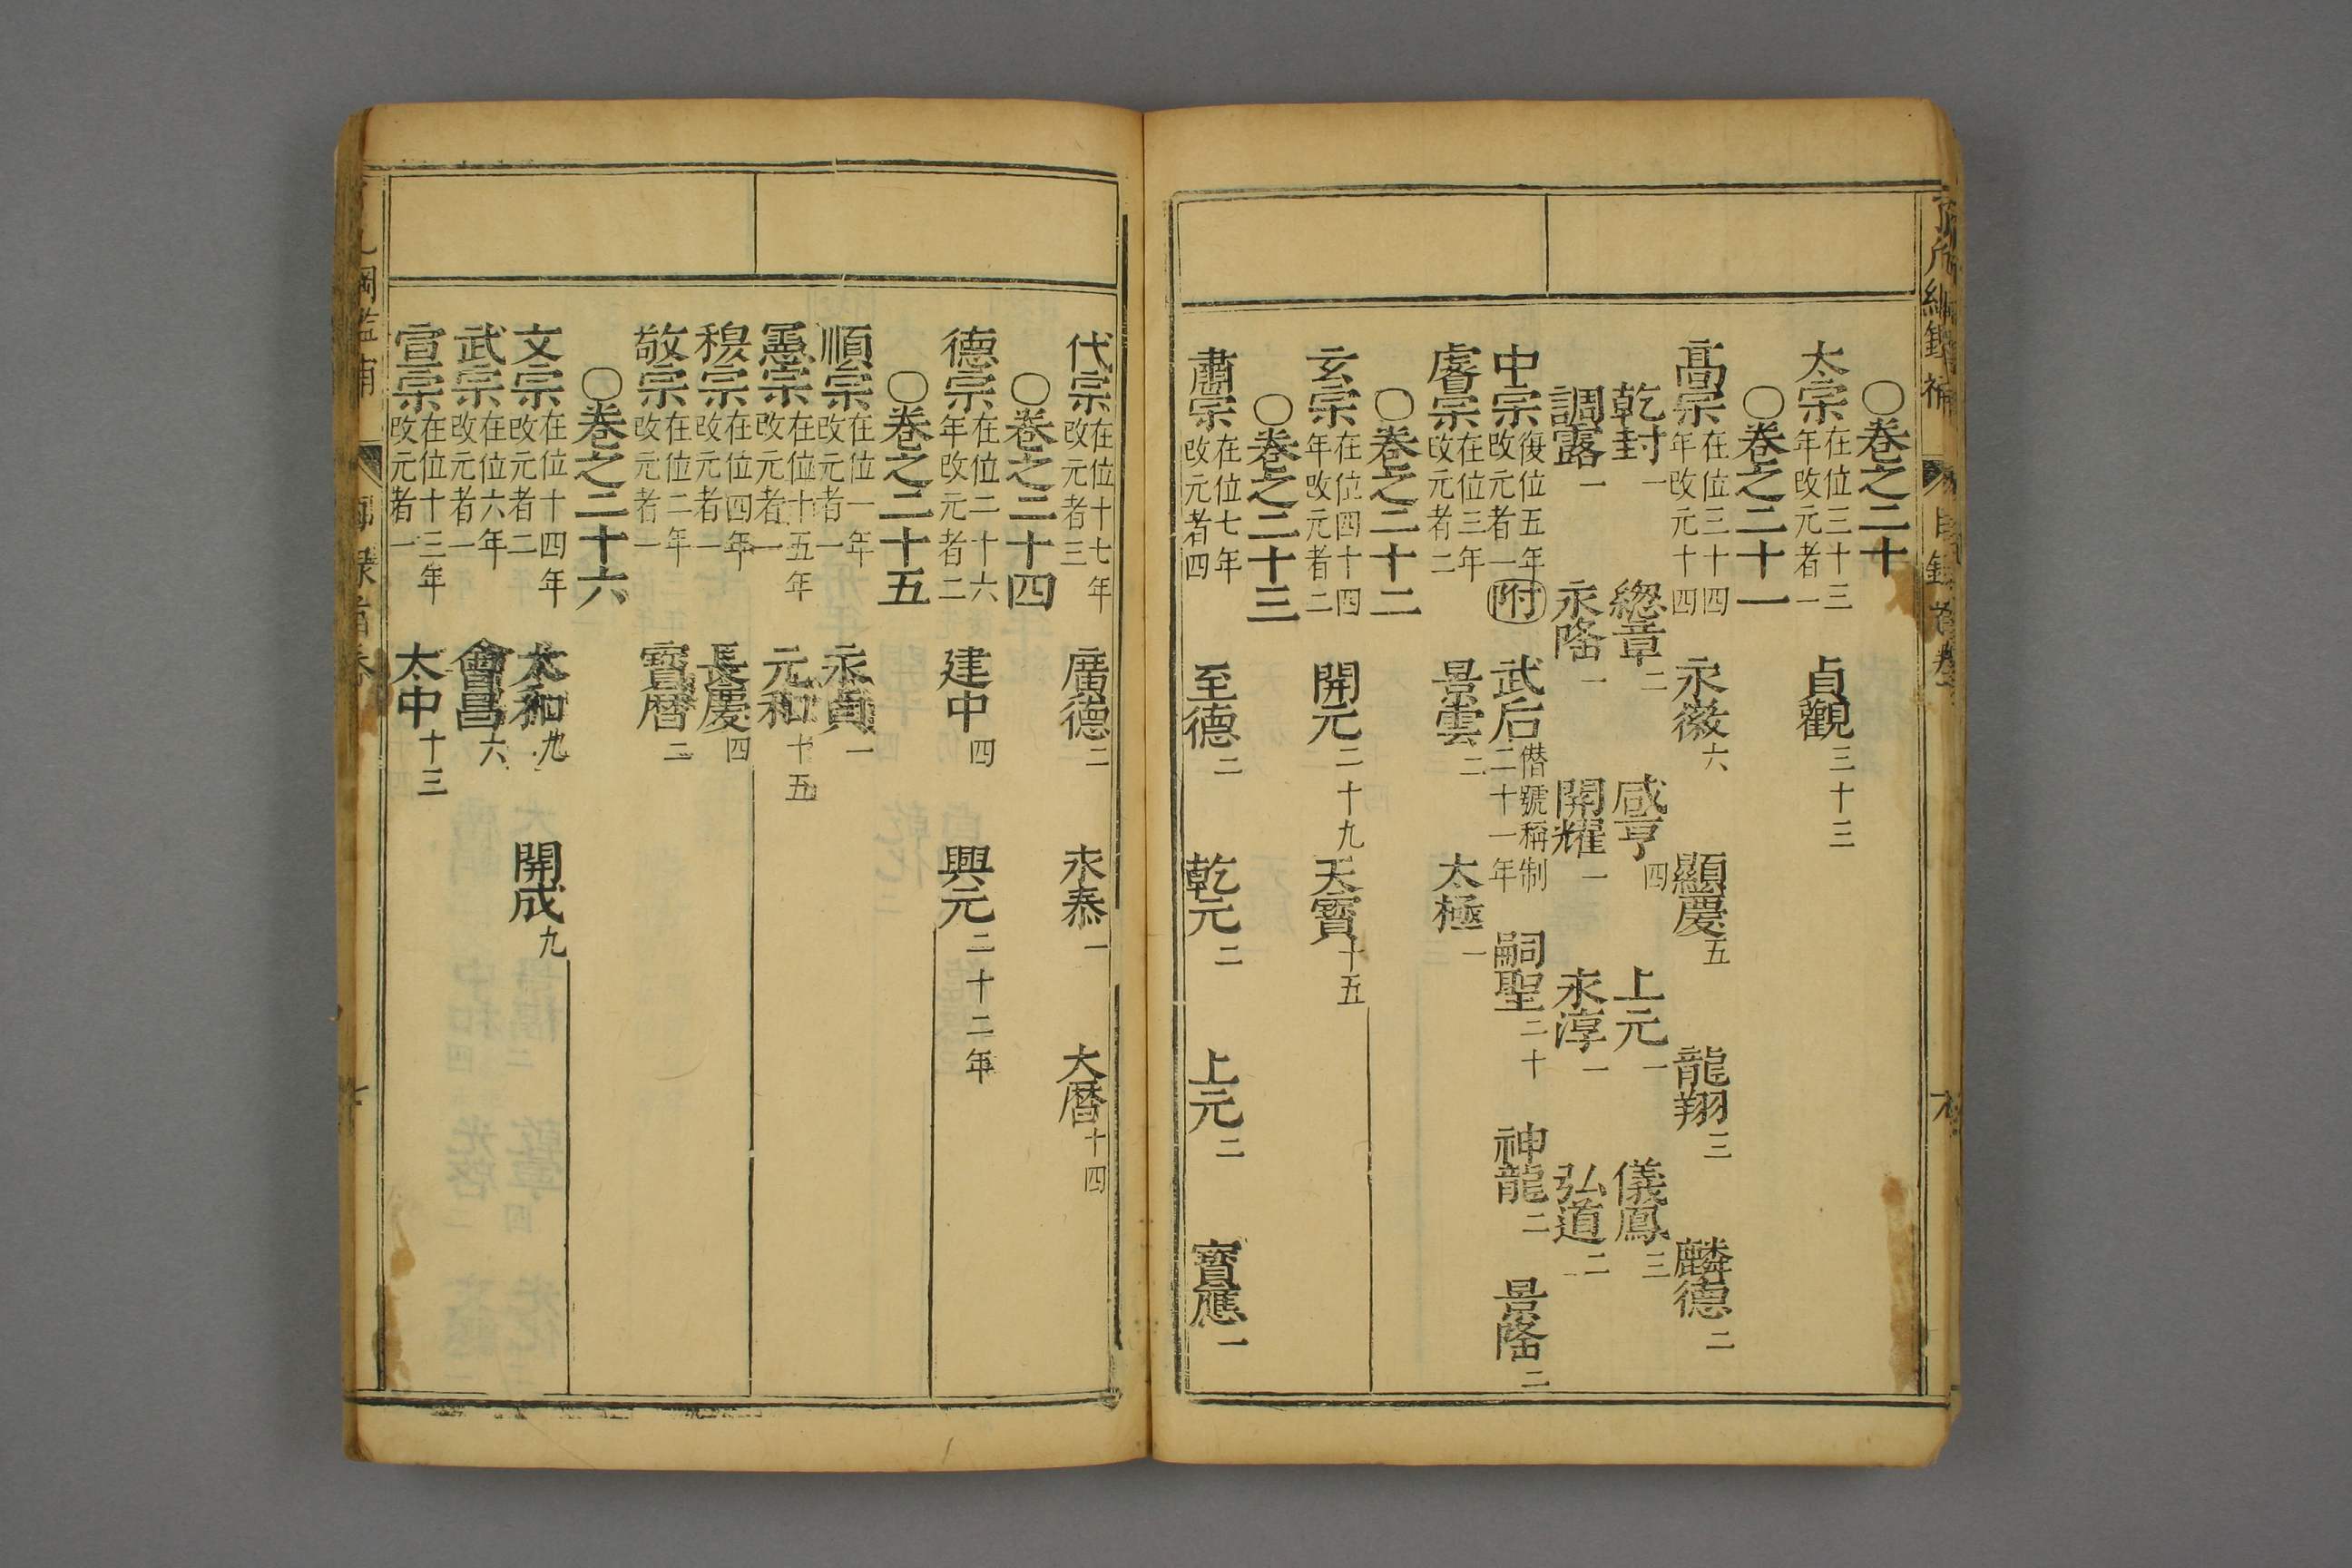 〇卷之二十
太宗在位三十三年改元者一 貞觀三十三
〇卷之二十一
高宗在位三十四年改元十四 永徽六 顯慶五 龍翔三 麟德二
乾封一 緫章二 咸亨四 上元一 儀鳳三
調露一 永隆一 開耀一 永淳一 弘道二
中宗復位五年改元者一附 武后僣號稱制二十一年 嗣聖二十 神龍二 景隆二
睿宗在位三年改元者二 景雲二 太極一
〇卷之二十二
玄宗在位四十四年改元者二 開元二十九 天寶十五
〇卷之二十三
肅宗在位七年改元者四 至德二 乾元二 上元二 寶應一
代宗在位十七年改元者三 廣德二 永泰一 大曆十四
〇卷之二十四
德宗在位二十六年改元者二 建中四 興元二十二年
〇卷之二十五
順宗在位一年改元者一 永貞一
憲宗在位十五年改元者一 元和十五
穆宗在位四年改元者一 長慶四
敬宗在位二年改元者一 寶曆二
〇卷之二十六
文宗在位十四年改元者二 太和九 開成九
武宗在位六年改元者一 會昌六
宣宗在位十三年改元者一 太中十三